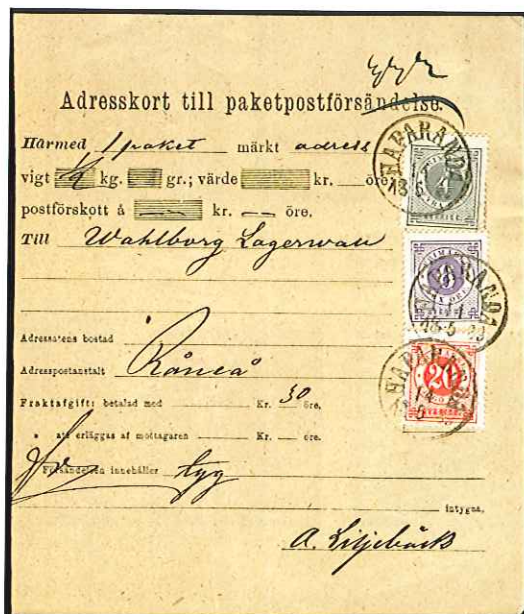 Adresskort till paketpostförsändelse.
Härmed 1 paket märkt adress
vigt ½ kg. gr.; värde kr. öre,
postförskott å — kr. — öre.
Till Wahlborg Lagerwall
Adressatens bostad
Adresspostanstalt Råneå
Fraktafgift: betalad med Kr. 30 öre,
" att erläggas af mottagaren Kr. — öre.
Försändelsen innehåller tyg
intygas,
A. Liljebäck
HAPARANDA
14
HAPARANDA
14
HAPARANDA
20
14